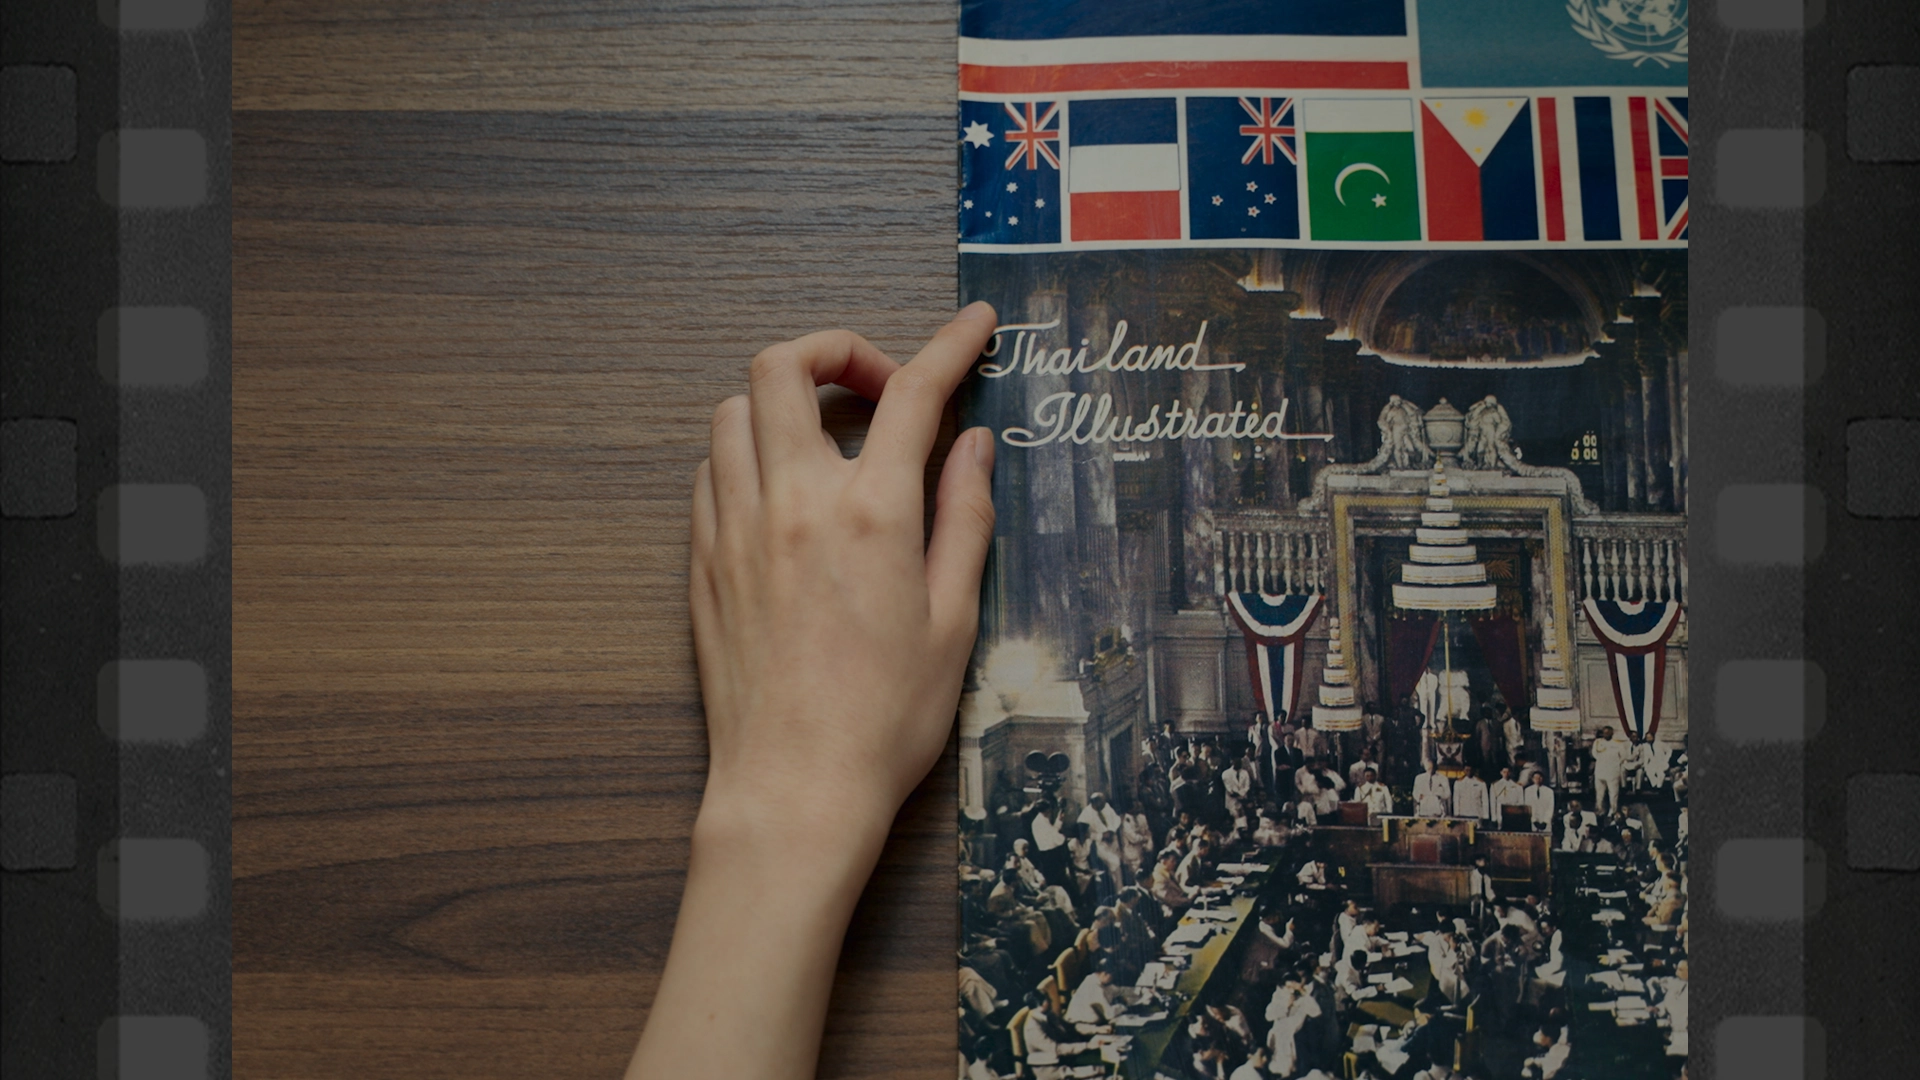 Thailand
Illustrated